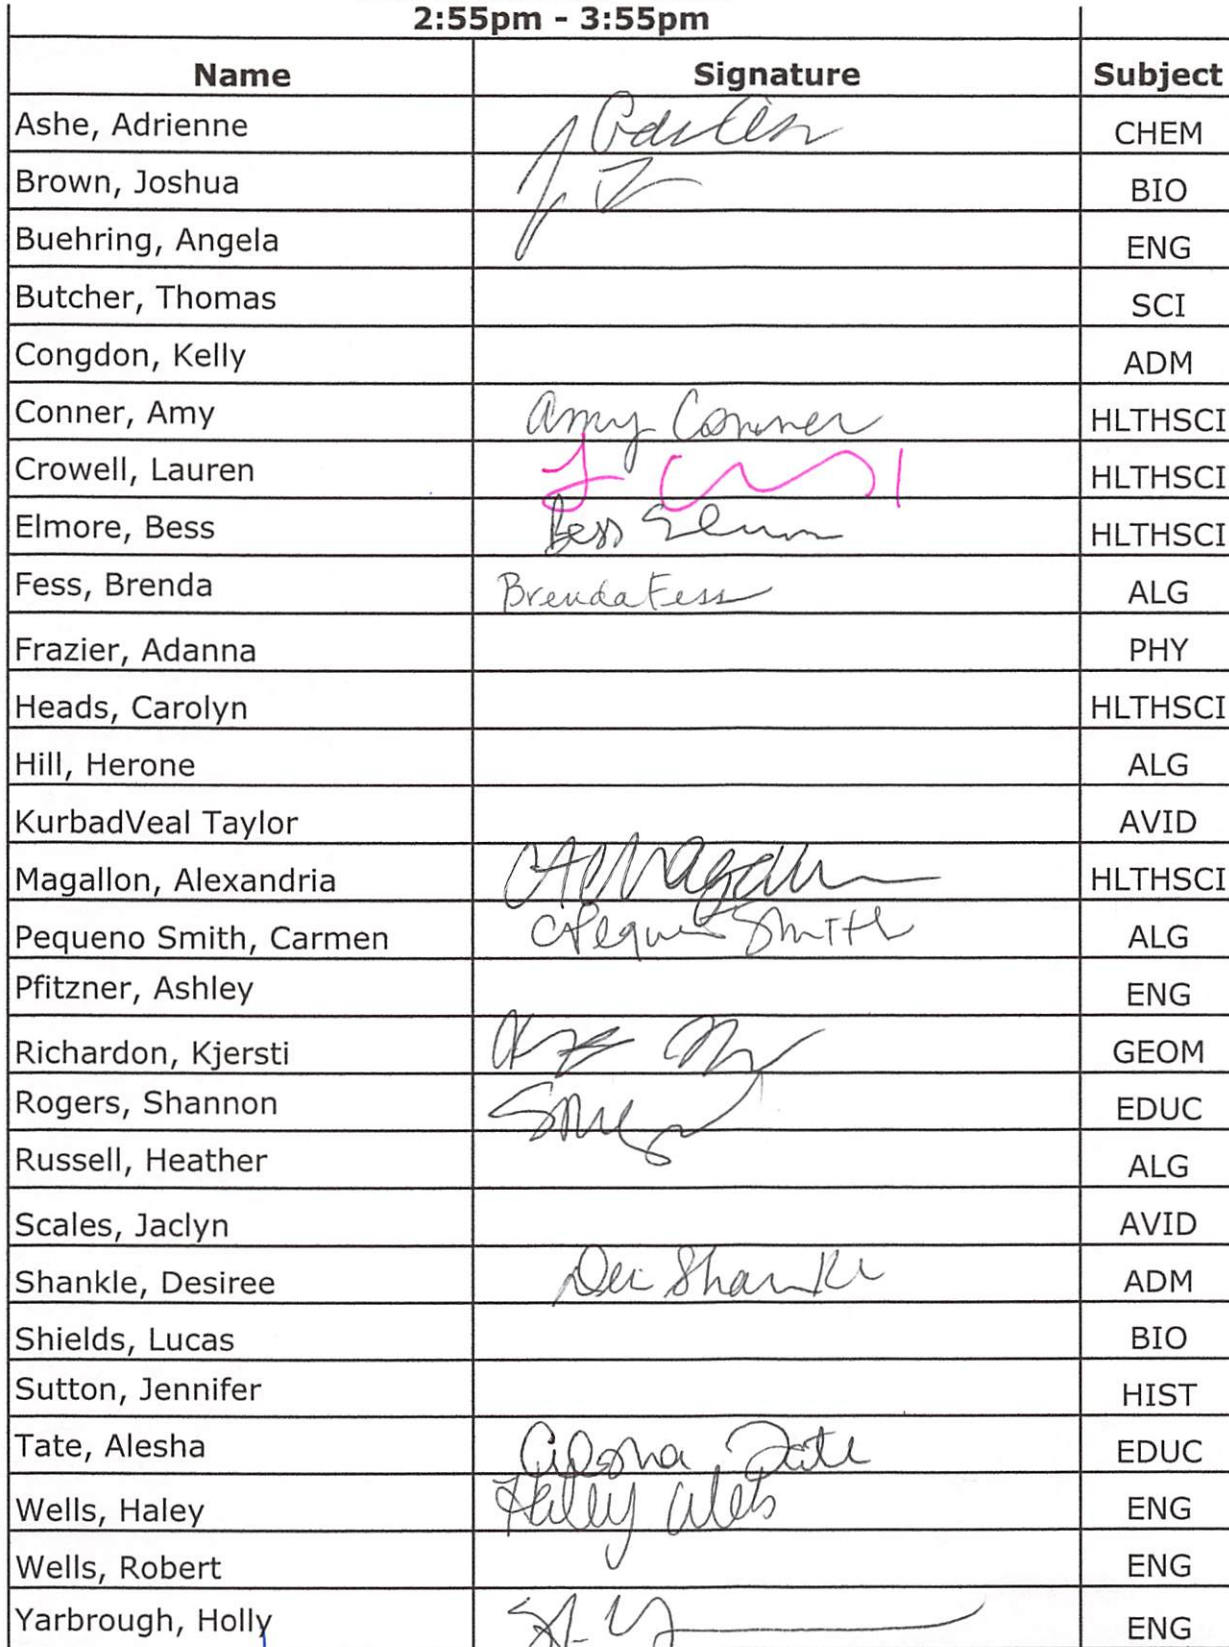 2:55pm - 3:55pm
Name Signature Subject
Ashe, Adrienne CHEM
Brown, Joshua BIO
Buehring, Angela ENG
Butcher, Thomas SCI
Congdon, Kelly ADM
Conner, Amy Amy Conner HLTHSCI
Crowell, Lauren HLTHSCI
Elmore, Bess Bess HLTHSCI
Fess, Brenda Brenda Fess ALG
Frazier, Adanna PHY
Heads, Carolyn HLTHSCI
Hill, Herone ALG
KurbadVeal Taylor AVID
Magallon, Alexandria HLTHSCI
Pequeno Smith, Carmen Smith ALG
Pfitzner, Ashley ENG
Richardon, Kjersti GEOM
Rogers, Shannon EDUC
Russell, Heather ALG
Scales, Jaclyn AVID
Shankle, Desiree ADM
Shields, Lucas BIO
Sutton, Jennifer HIST
Tate, Alesha Tate EDUC
Wells, Haley Haley ENG
Wells, Robert ENG
Yarbrough, Holly ENG